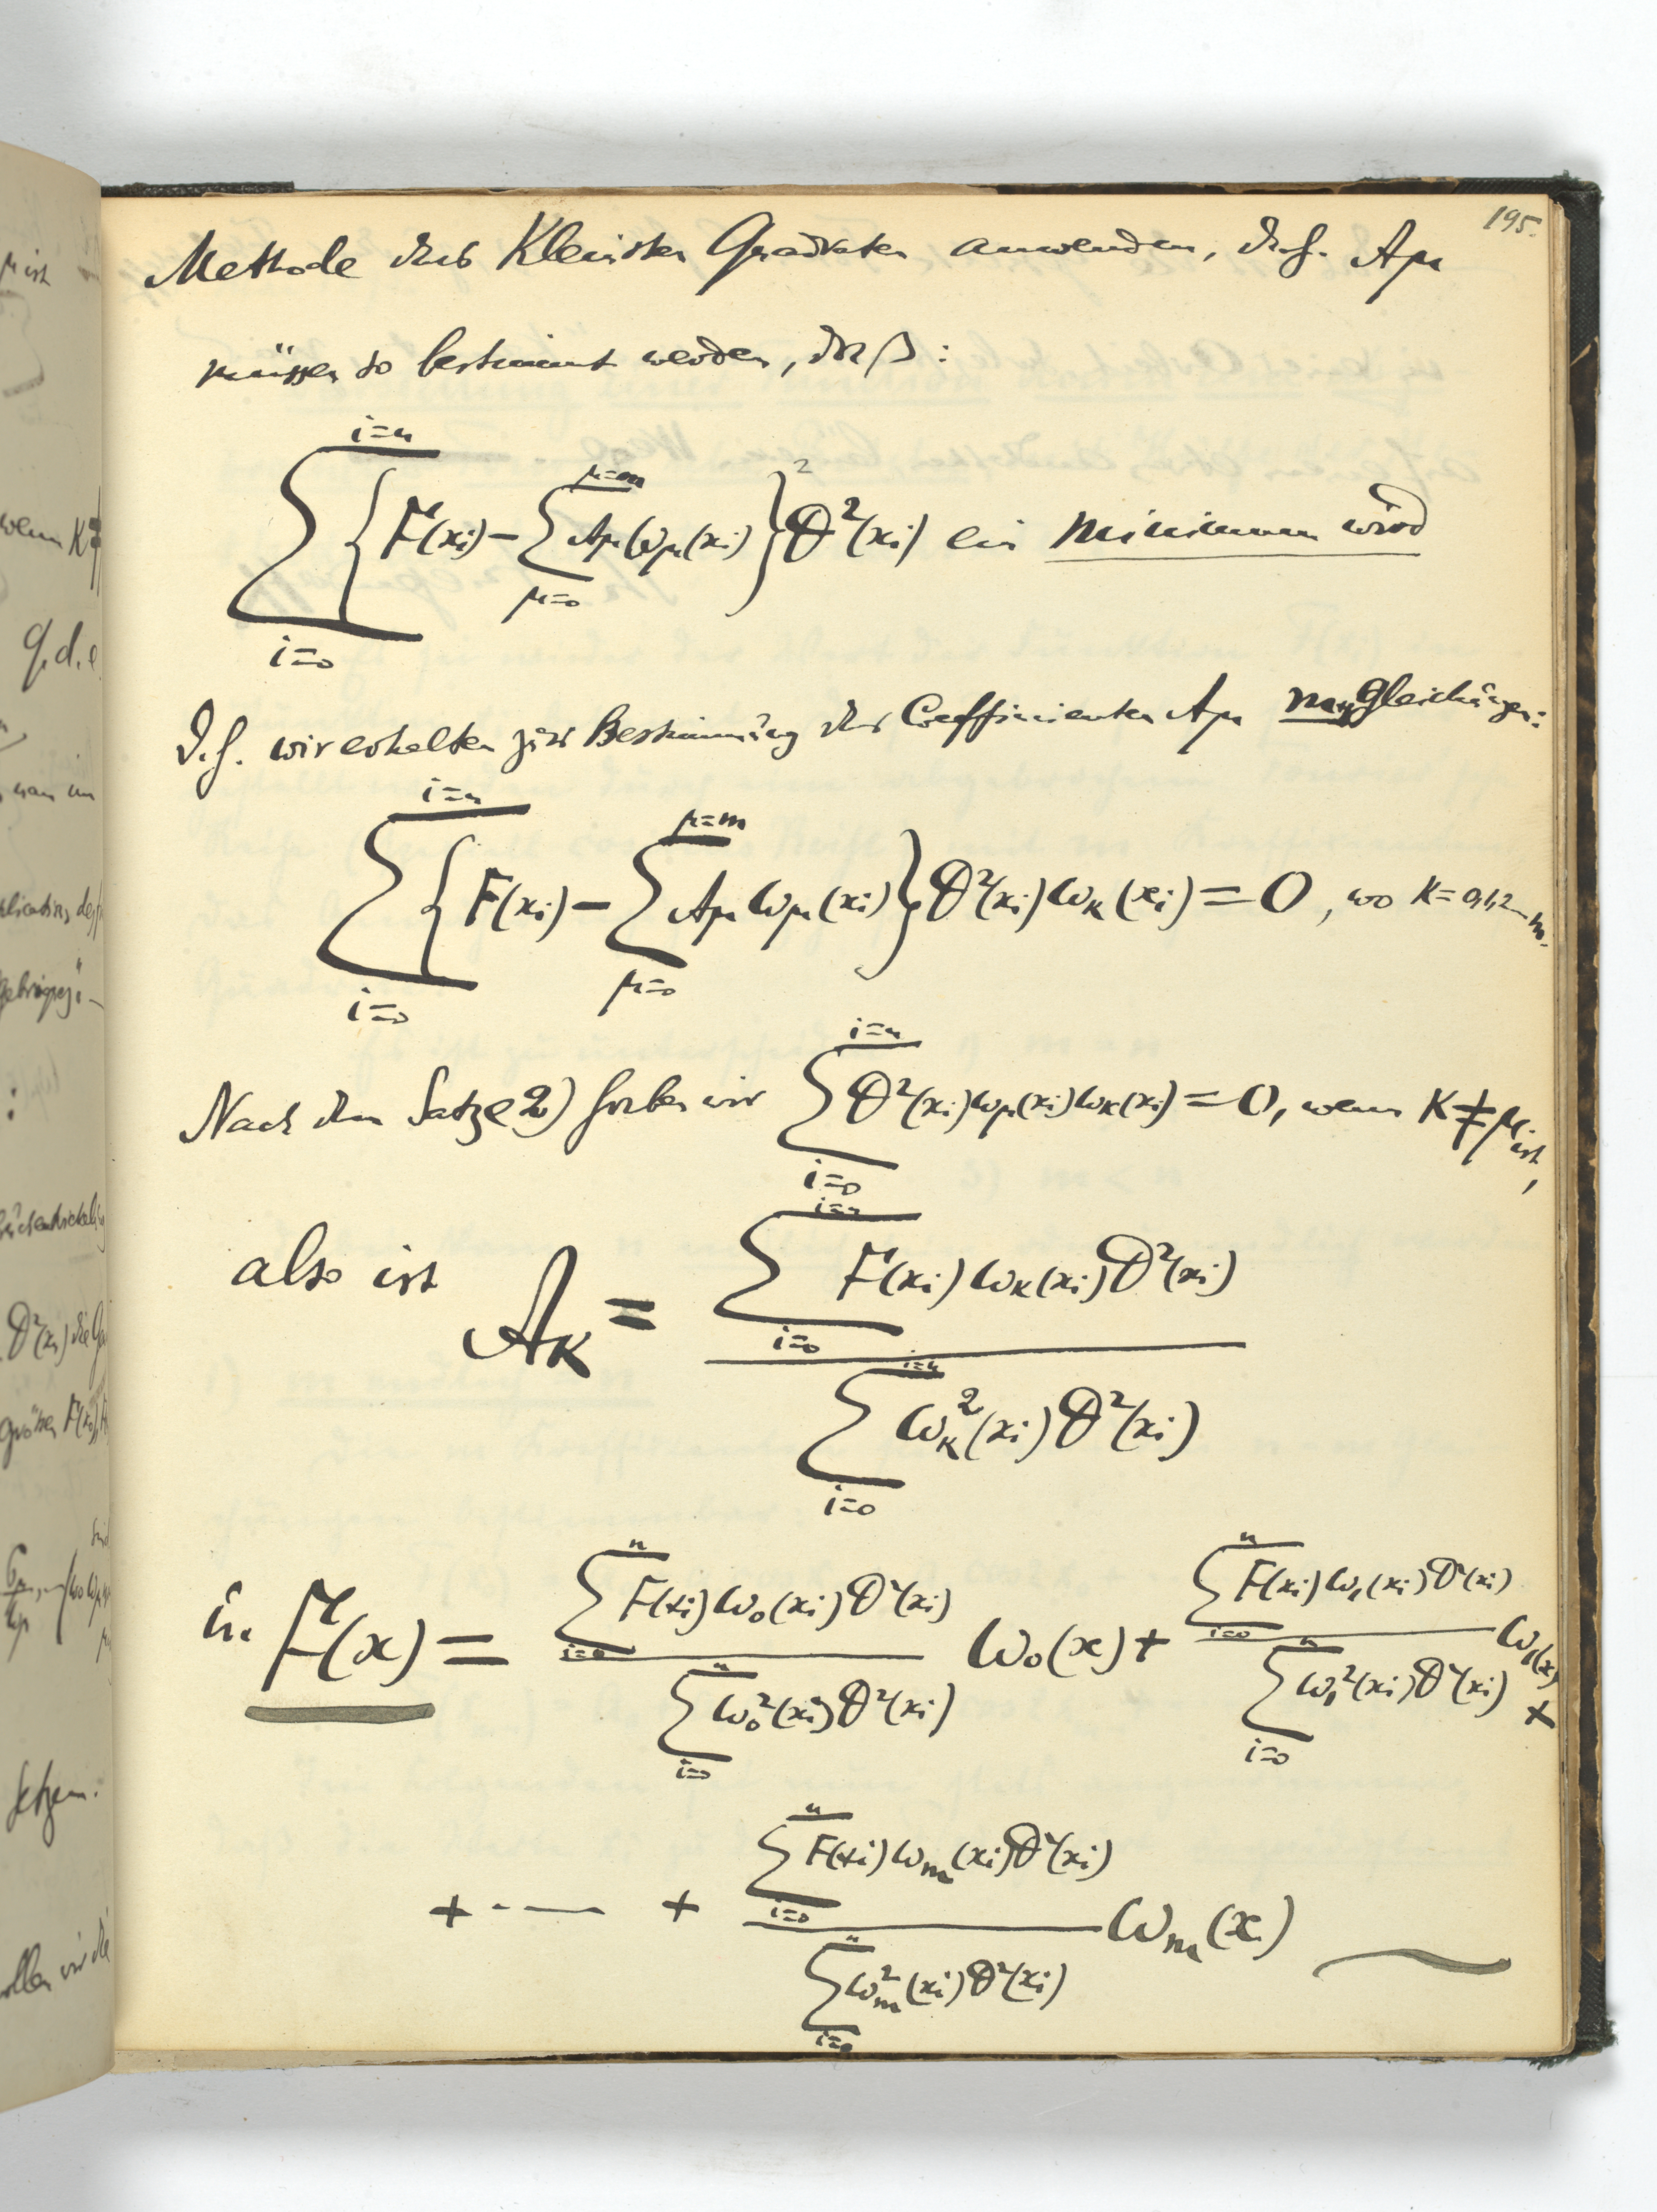 195.
Methode der Kleinsten Quadraten anwenden, d.h. Aμ
müssen so bestimmt werden, daß:
∑_{i=0}^{i=n} { F(xi) − ∑_{μ=0}^{μ=m} Aμ ωμ(xi) }² θ²(xi) ein minimum wird
D.h. wir erhalten zur Bestimmung der Coefficienten Aμ m+1 Gleichungen:
∑_{i=0}^{i=n} { F(xi) − ∑_{μ=0}^{μ=m} Aμ ωμ(xi) } θ²(xi) ωK(xi) = 0, wo K = 0,1,2...m.
Nach dem Satze 2) haben wir ∑_{i=0}^{i=n} θ²(xi) ωμ(xi) ωK(xi) = 0, wenn K ≠ μ ist,
also ist AK = ∑_{i=0}^{i=n} F(xi) ωK(xi) θ²(xi) / ∑_{i=0}^{i=n} ωK²(xi) θ²(xi)
u. F(x) = ∑_{i=0}^{n} F(xi) ω0(xi) θ²(xi) / ∑_{i=0}^{n} ω0²(xi) θ²(xi) ω0(x) + ∑_{i=0}^{n} F(xi) ω1(xi) θ²(xi) / ∑_{i=0}^{n} ω1²(xi) θ²(xi) ω1(x) +
+ ... + ∑_{i=0}^{n} F(xi) ωm(xi) θ²(xi) / ∑_{i=0}^{n} ωm²(xi) θ²(xi) ωm(x)
μ ist
wenn K≠
q.d.e
setzen.
wollen wir die